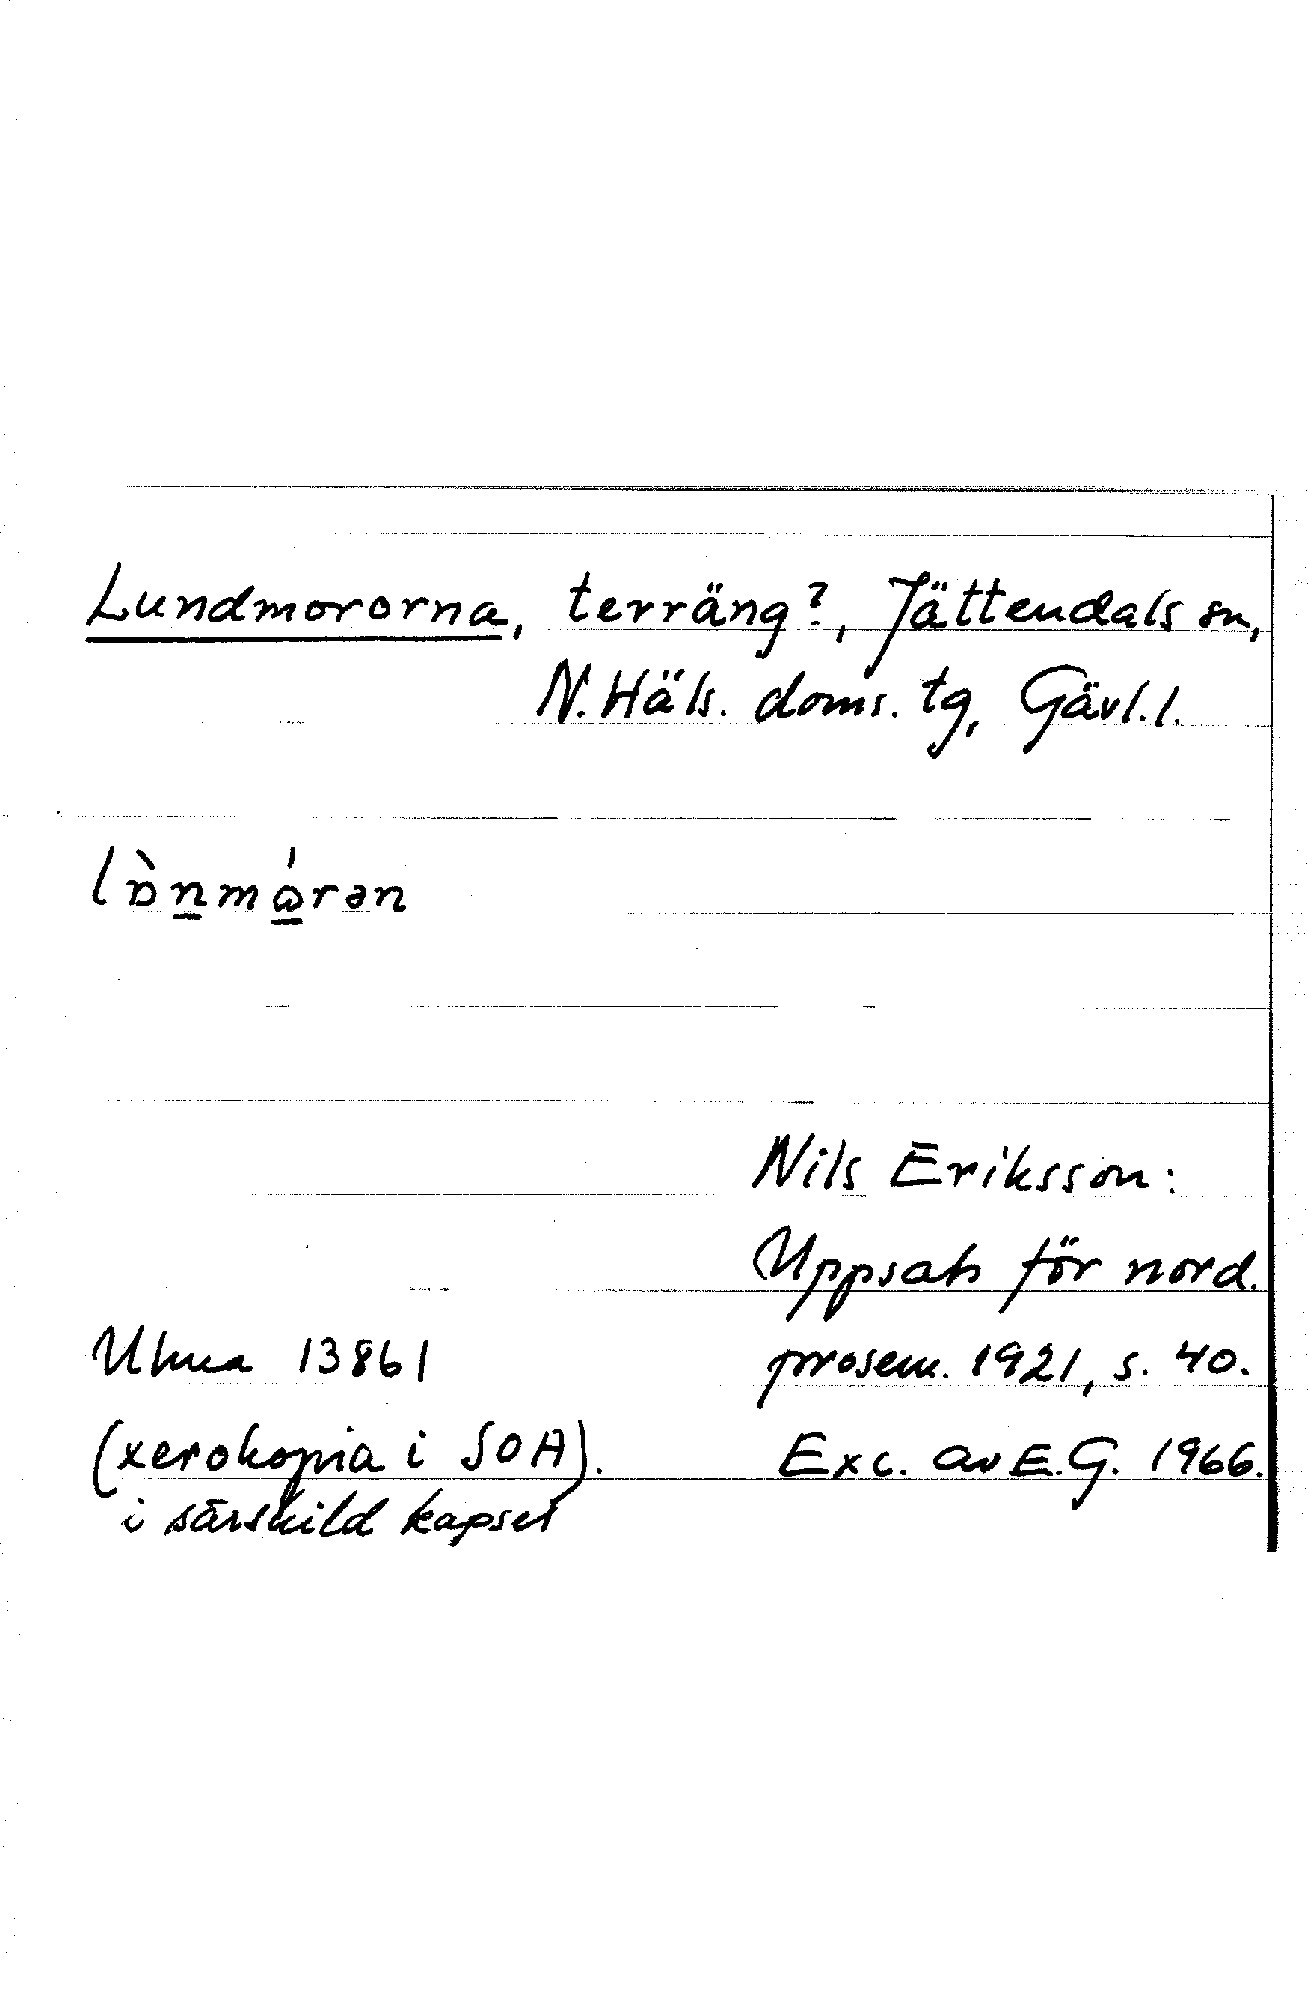 Lundmororna, terräng?, Jättendals sn,
N. Häls. doms. tg, Gävl. l.
lɒ̀n̲mɷ̲́rən
Nils Eriksson:
Uppsats för nord.
Ulma 13861 prosem. 1921, s. 40.
(xerokopia i SOA). Exc. av E.G. 1966.
i särskild kapsel